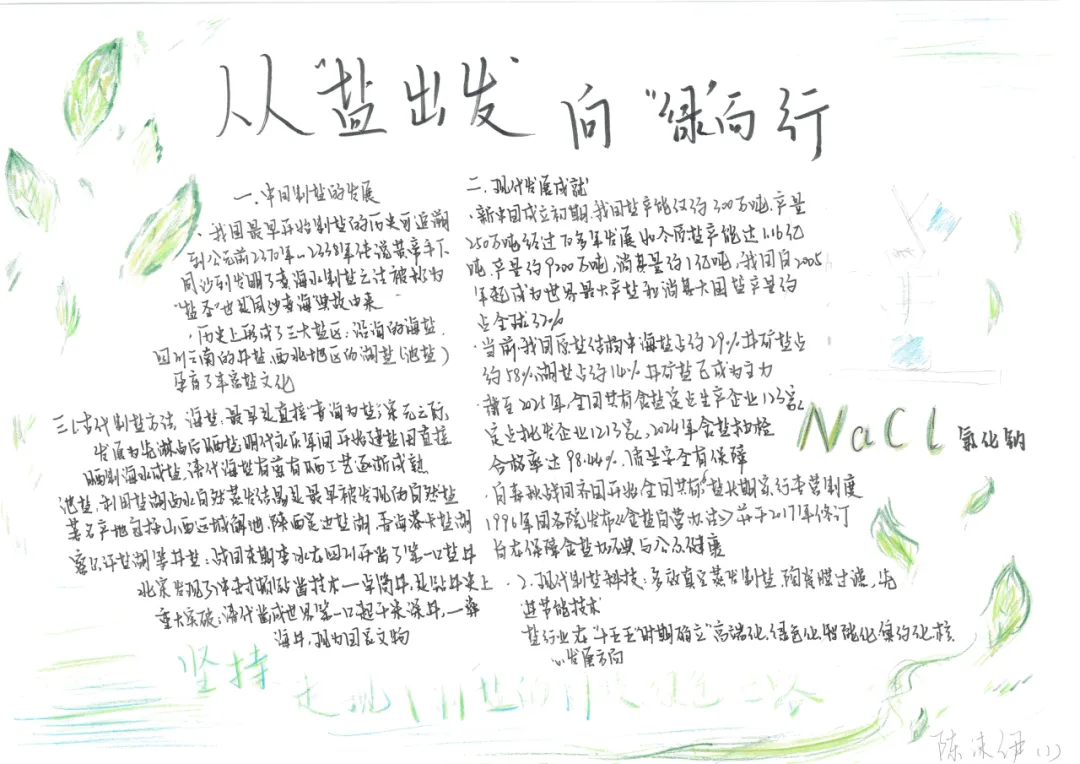 从“盐出发” 向“绿”而行
一、中国制盐的发展
·我国最早开始制盐的历史可追溯
到公元前2370年~2338年传说黄帝手下
夙沙氏发明了煮海水制盐之法被称为
“盐圣”也是夙沙煮海典故由来
·历史上形成了三大盐区：沿海的海盐，
四川云南的井盐，西北地区的湖盐（池盐）
孕育了丰富盐文化
三、古代制盐方法 海盐：最早是直接煮海为盐；宋元之际，
发展为先晒卤后晒盐，明代永乐年间开始建盐田直接
晒制海水成盐，清代海盐有煮有晒工艺逐渐成熟
池盐：利用盐湖卤水自然蒸发结晶是最早被发现的自然盐
著名产地包括山西运城解池、陕西定边盐湖、青海茶卡盐湖
察尔汗盐湖等井盐：战国末期李冰在四川开凿了第一口盐井
北宋发现了冲击式顿钻凿技术—卓筒井，是钻井史上
重大突破；清代凿成世界第一口超千米深井，—燊
海井，现为国家文物
二、现代发展成就
·新中国成立初期，我国盐产能仅约300万吨，产量
250万吨经过70多年发展如今原盐产能达1.16亿
吨，产量约9200万吨，消费量约1亿吨，我国自2005
年起成为世界最大产盐和消费大国盐产量约
占全球32%
·当前，我国原盐结构中海盐占约29%，井矿盐占
约58%，湖盐占约14%井矿盐已成为主力
·截至2025年，全国共有食盐定点生产企业123家，
定点批发企业1213家，2024年食盐抽检
合格率达98.44%，质量安全有保障
·自春秋战国齐国开始全国共有盐长期实行专营制度
1996年国务院发布《食盐专营办法》并于2017年修订
旨在保障食盐加碘与公众健康
·2、现代制盐科技：多效真空蒸发制盐，陶瓷膜过滤，先
进节能技术
盐行业在“十五五”时期确立“高端化，绿色化，智能化，集约化，核
心发展方向
NaCl 氯化钠
坚持
陈沫伊（1）